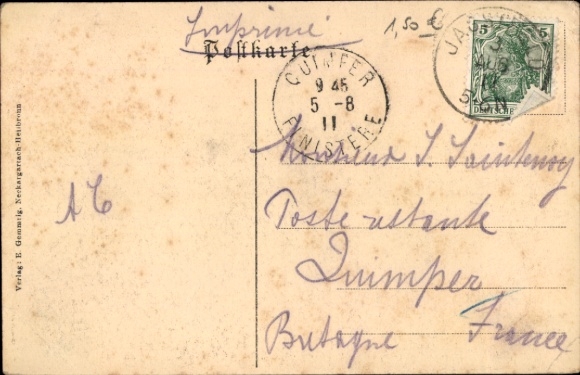 Imprimé
1,50 €
Postkarte
5 5
DEUTSCHE
QUIMPER
9 45
5 - 8
11
FINISTERE
Monsieur J. Saintenoy
Poste restante
Quimper
Bretagne France
Verlag: E. Gemmrig, Neckargartach-Heilbronn